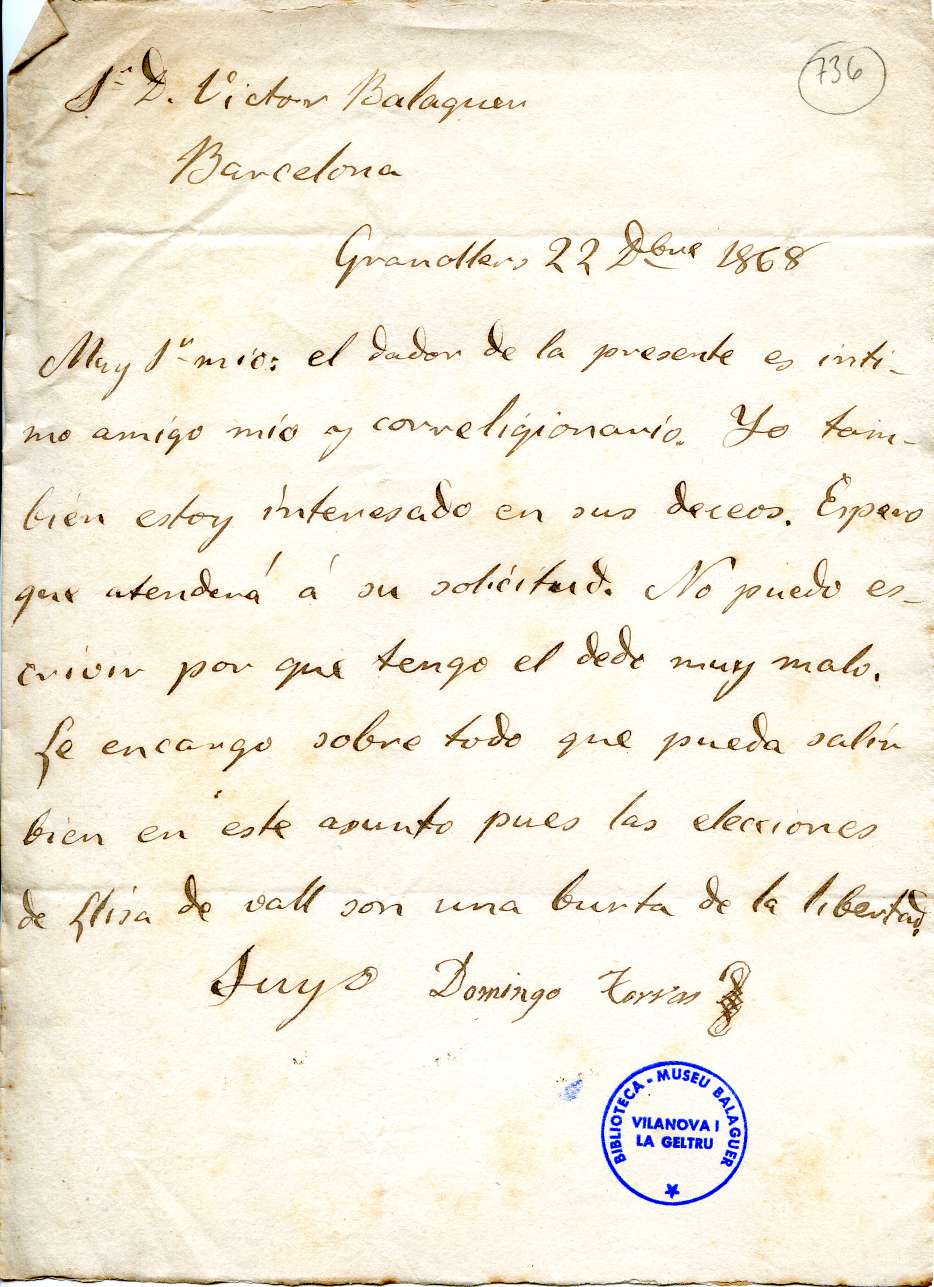 736
Sr. D. Victor Balaguer
Barcelona
Granollers 22 Dbre 1868
Muy Sr mio: el dador de la presente es inti-
mo amigo mio y correligionario. Yo tam-
bien estoy interesado en sus deceos. Espero
que atenderá á su solicitud. No puedo es-
crivir por que tengo el dedo muy malo.
Le encargo sobre todo que pueda salir
bien en este asunto pues las elecciones
de Llisa de vall son una burla de la libertad.
Suyo Domingo Torras
BIBLIOTECA - MUSEU BALAGUER
VILANOVA I
LA GELTRU